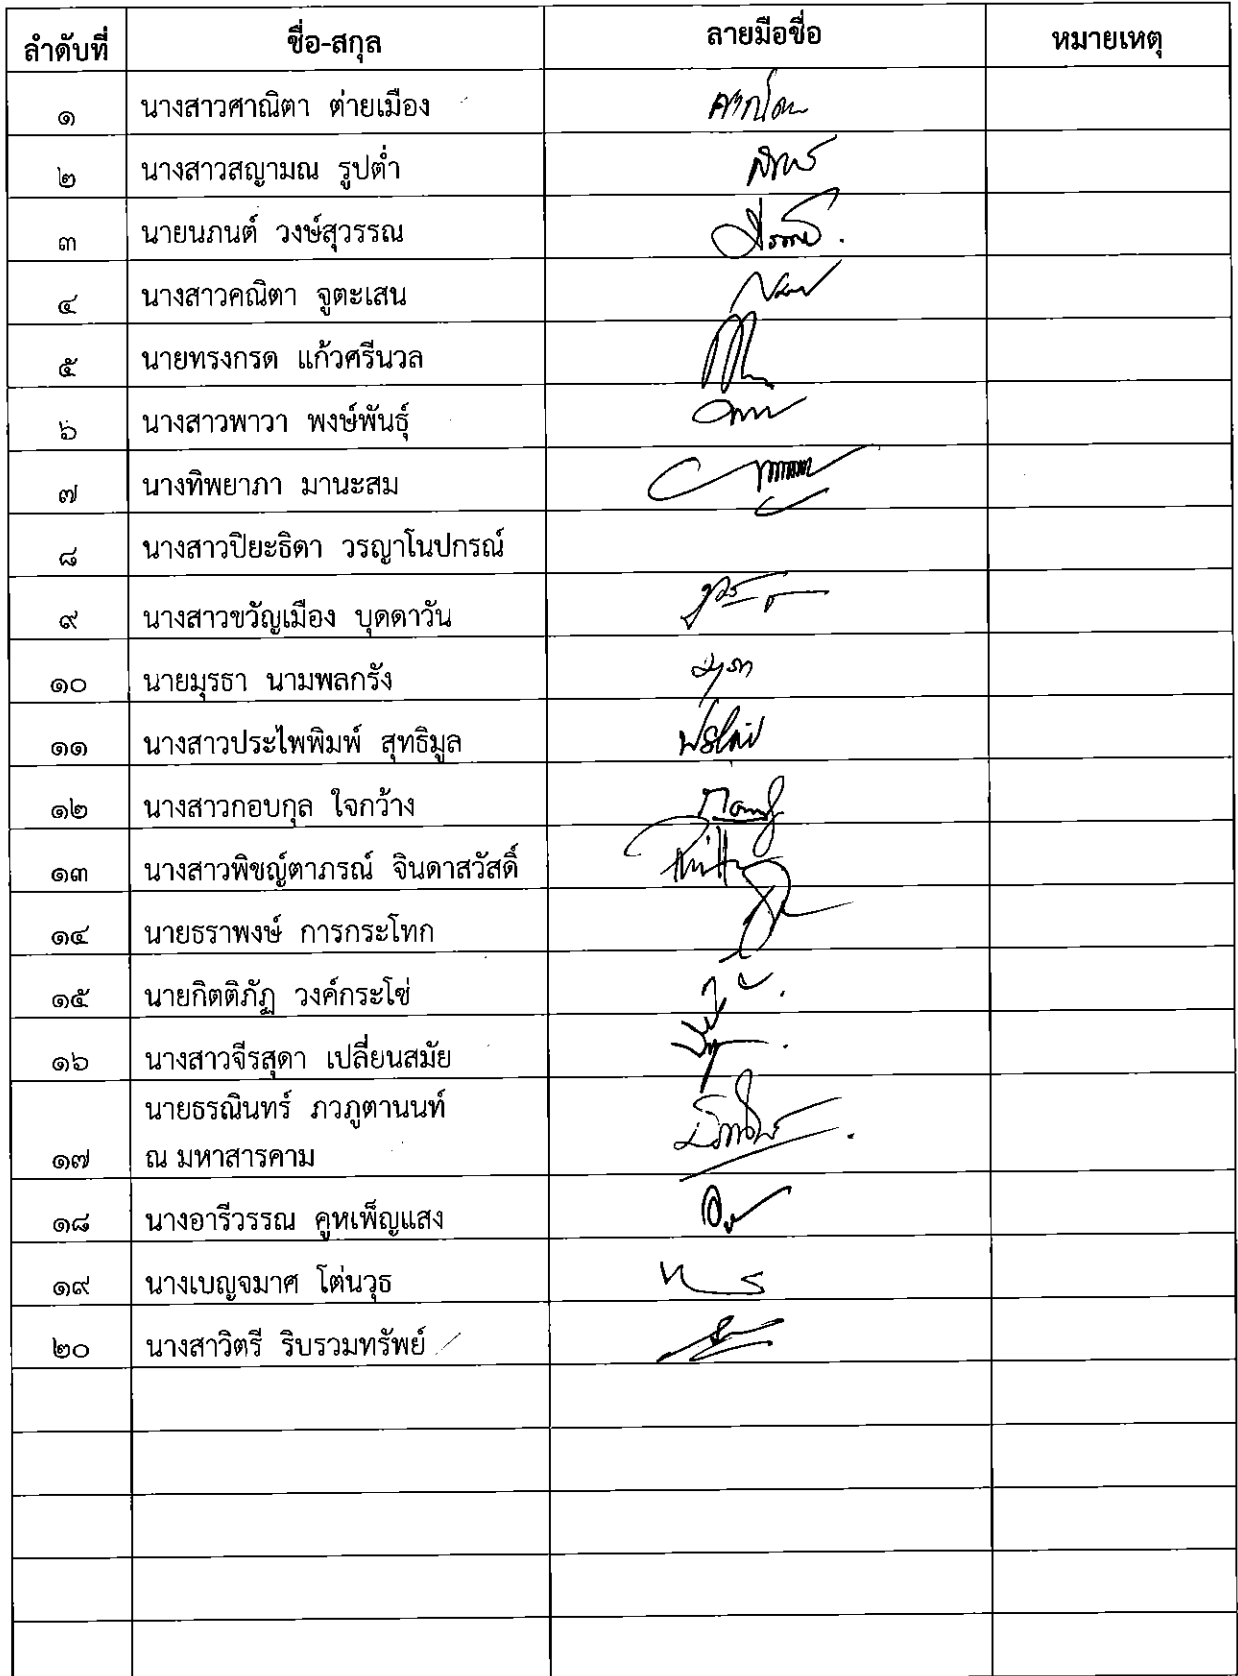 ลำดับที่ ชื่อ-สกุล ลายมือชื่อ หมายเหตุ
๑ นางสาวศาณิตา ต่ายเมือง
๒ นางสาวสญามณ รูปต่ำ
๓ นายนภนต์ วงษ์สุวรรณ
๔ นางสาวคณิตา จูตะเสน
๕ นายทรงกรด แก้วศรีนวล
๖ นางสาวพาวา พงษ์พันธุ์
๗ นางทิพยาภา มานะสม
๘ นางสาวปิยะธิดา วรญาโนปกรณ์
๙ นางสาวขวัญเมือง บุดดาวัน
๑๐ นายมุรธา นามพลกรัง
๑๑ นางสาวประไพพิมพ์ สุทธิมูล
๑๒ นางสาวกอบกุล ใจกว้าง
๑๓ นางสาวพิชญ์ตาภรณ์ จินดาสวัสดิ์
๑๔ นายธราพงษ์ การกระโทก
๑๕ นายกิตติภัฏ วงค์กระโซ่
๑๖ นางสาวจีรสุดา เปลี่ยนสมัย
นายธรณินทร์ ภวภูตานนท์
๑๗ ณ มหาสารคาม
๑๘ นางอารีวรรณ คูหเพ็ญแสง
๑๙ นางเบญจมาศ โต่นวุธ
๒๐ นางสาวิตรี ริบรวมทรัพย์